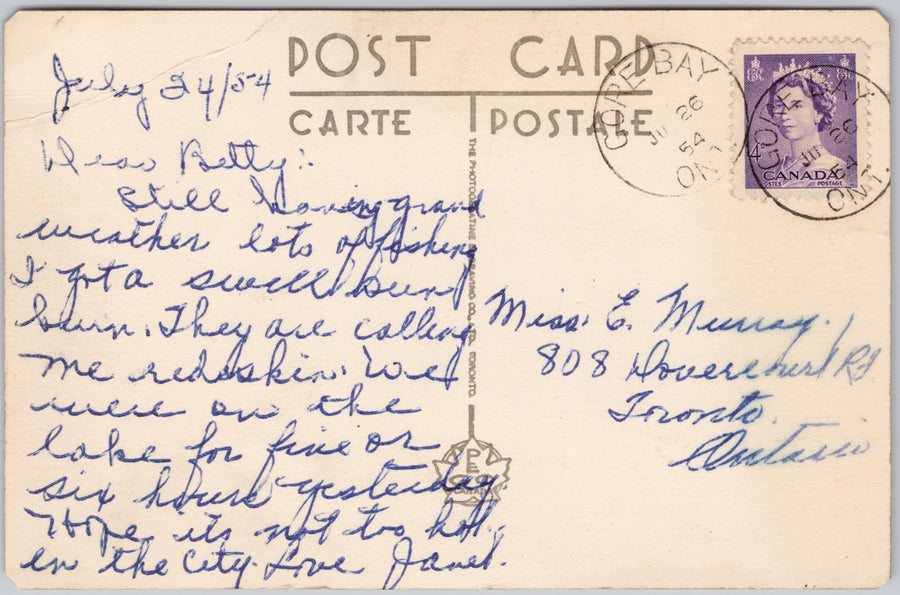 POST CARD
CARTE POSTALE
THE PHOTOGELATINE ENGRAVING CO., LTD. TORONTO
GORE BAY
JU 26
54
ONT.
GORE BAY
JU 26
54
ONT.
4
CANADA
POSTES POSTAGE
July 24/54
Dear Betty:
Still having grand
weather lots of fishing
I got a swell sun
burn. They are calling
me redskin. We
were on the
lake for five or
six hours yesterday.
Hope its not too hot
in the city. Love Janet.
Miss. E. Murray.
808 Dovercourt Rd
Toronto.
Ontario
PECO
CANADA